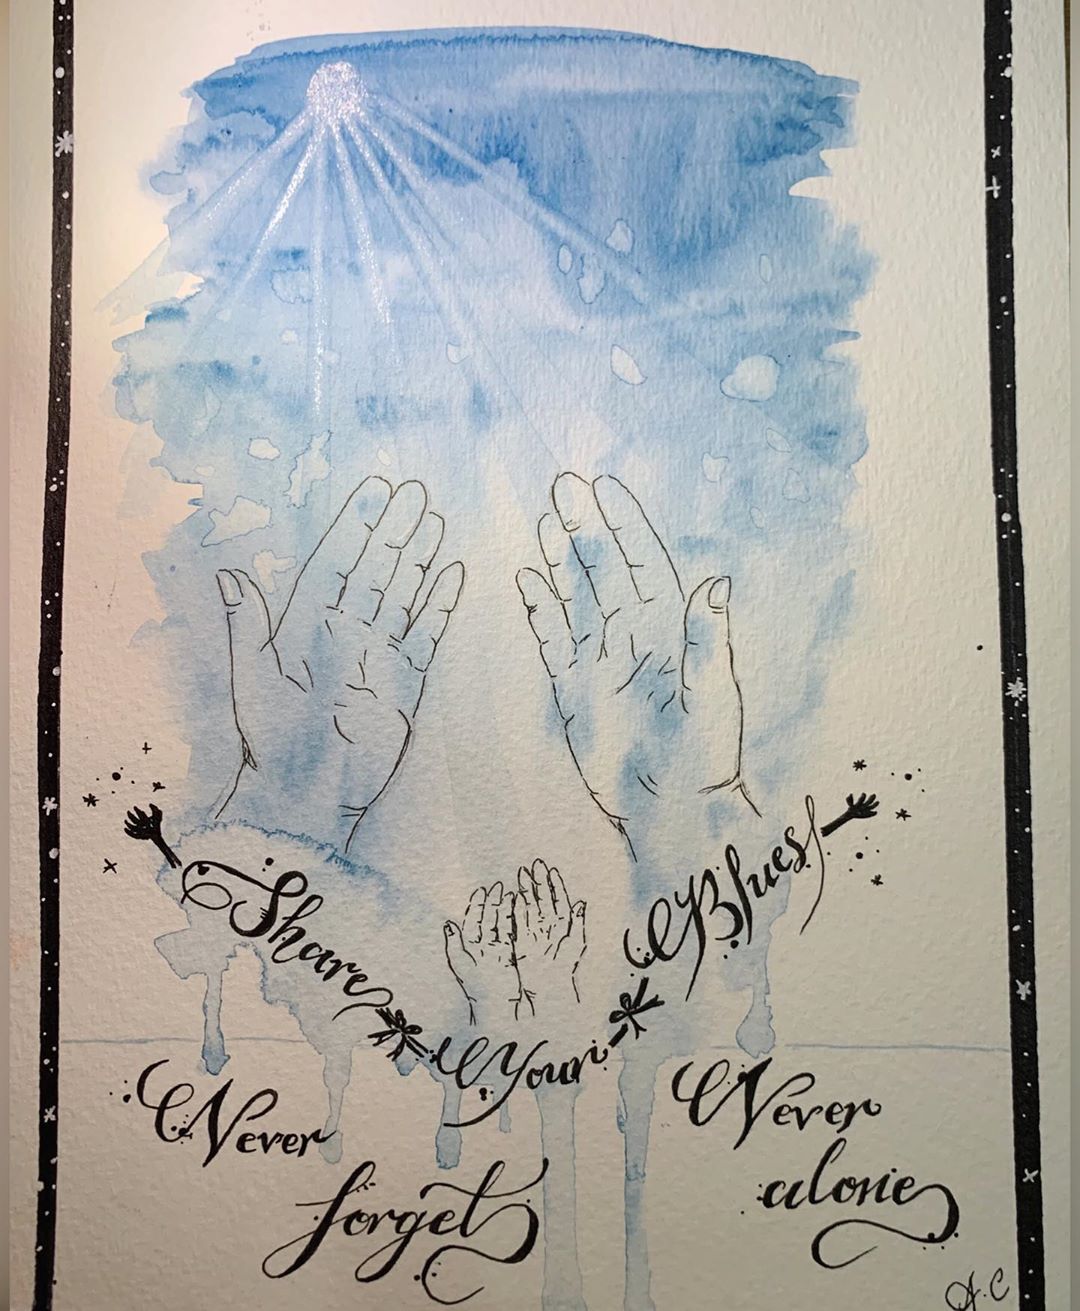 Share Your Blues
Never
forget
Never
alone
A.C